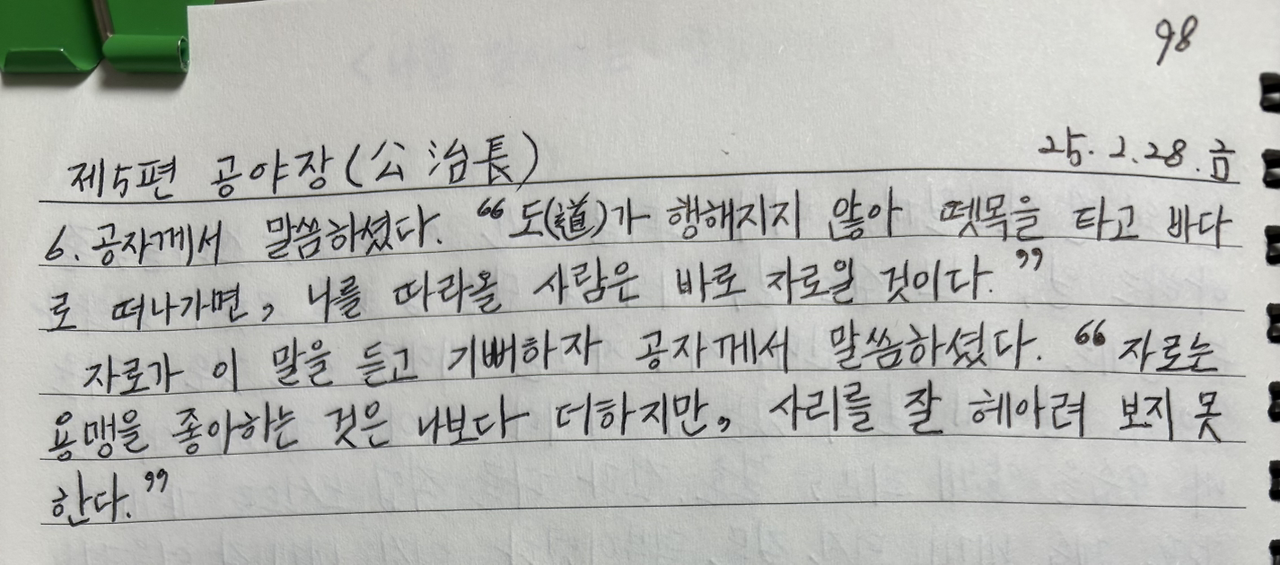 98
제5편 공야장(公冶長) 25.2.28.금
6. 공자께서 말씀하셨다. “도(道)가 행해지지 않아 뗏목을 타고 바다
로 떠나가면, 나를 따라올 사람은 바로 자로일 것이다.”
자로가 이 말을 듣고 기뻐하자 공자께서 말씀하셨다. “자로는
용맹을 좋아하는 것은 나보다 더하지만, 사리를 잘 헤아려 보지 못
한다.”